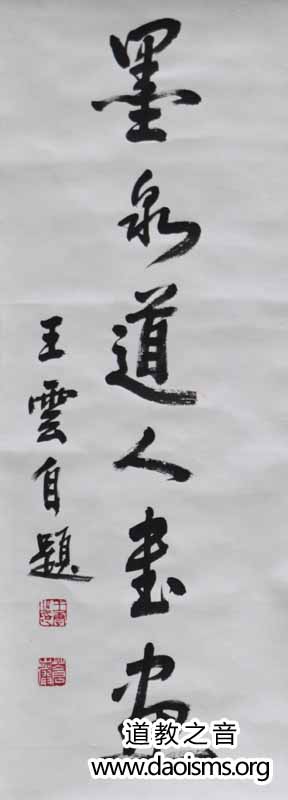 墨泉道人书画
王雲自題
道教之音
www.daoisms.org